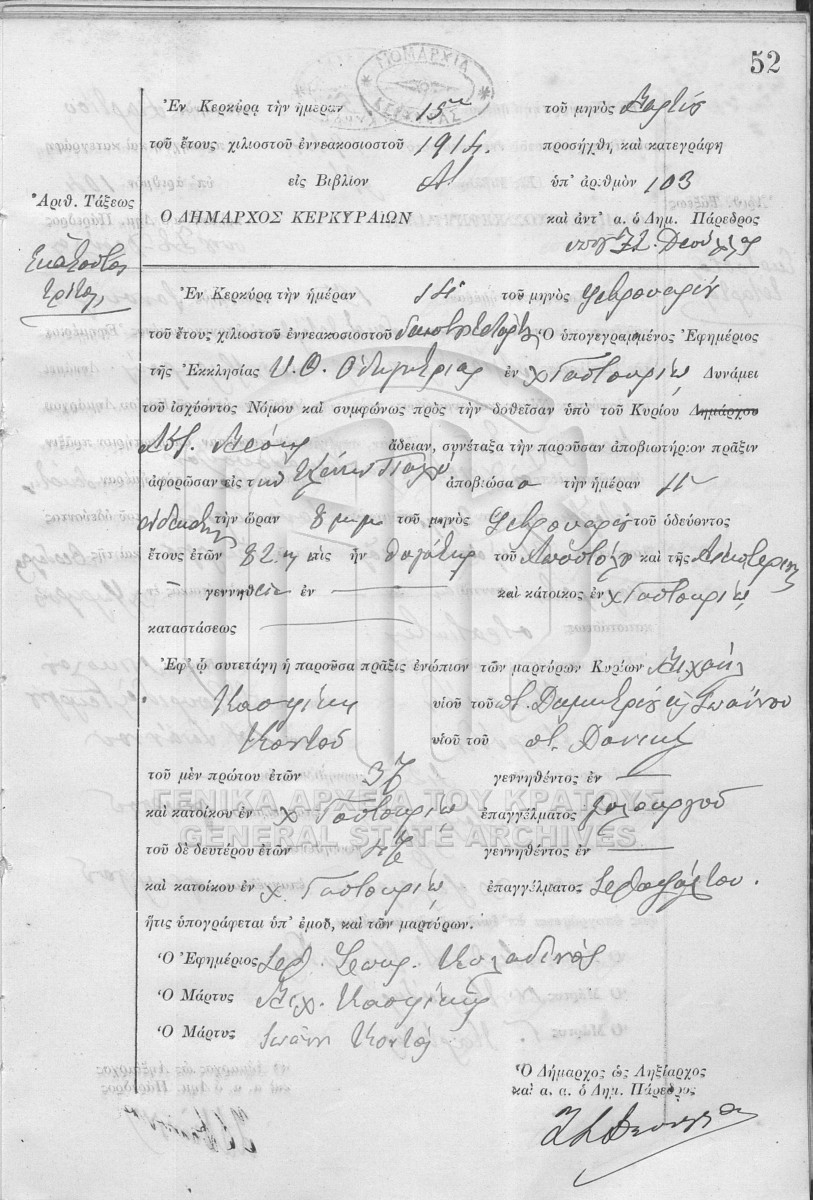 52
ΝΟΜΑΡΧΙΑ ΚΕΡΚΥΡΑΣ
Ἐν Κερκύρᾳ τὴν ἡμέραν 15ην τοῦ μηνὸς Μαρτίου
τοῦ ἔτους χιλιοστοῦ ἐννεακοσιοστοῦ 1914. προσήχθη καὶ κατεγράφη
εἰς Βιβλίον Α' ὑπ' ἀριθμὸν 103
Ἀριθ. Τάξεως
Ο ΔΗΜΑΡΧΟΣ ΚΕΡΚΥΡΑΙΩΝ καὶ ἀντ' α. ὁ Δημ. Πάρεδρος
Ἑκατοστὸς
τρίτος
Ἐν Κερκύρᾳ τὴν ἡμέραν 14 τοῦ μηνὸς Φεβρουαρίου
τοῦ ἔτους χιλιοστοῦ ἐννεακοσιοστοῦ δεκάτου τετάρτου Ὁ ὑπογεγραμμένος Ἐφημέριος
τῆς Ἐκκλησίας Υ. Θ. Ὁδηγητρίας ἐν χ Γαστουρίῳ Δυνάμει
τοῦ ἰσχύοντος Νόμου καὶ συμφώνως πρὸς τὴν δοθεῖσαν ὑπὸ τοῦ Κυρίου Δημάρχου
ἄδειαν, συνέταξα τὴν παροῦσαν ἀποβιωτήριον πρᾶξιν
ἀφορῶσαν εἰς τ ἀποβιώσασα τὴν ἡμέραν 11
ἑνδεκάτην τὴν ὥραν 8 μμ τοῦ μηνὸς Φεβρουαρίου τοῦ ὁδεύοντος
ἔτους ἐτῶν 82 ἥτις ἦν θυγάτηρ τοῦ Ἀποστόλου καὶ τῆς Αἰκατερίνης
γεννηθεῖσα ἐν — καὶ κάτοικος ἐν χ Γαστουρίῳ
καταστάσεως —
Ἐφ' ᾧ συνετάγη ἡ παροῦσα πρᾶξις ἐνώπιον τῶν μαρτύρων Κυρίων Μιχαὴλ
Κασφίκη υἱοῦ τοῦ ποτ. Δημητρίου καὶ Ἰωάννου
Κοντοῦ υἱοῦ τοῦ ποτ.
τοῦ μὲν πρώτου ἐτῶν γεννηθέντος ἐν —
ΓΕΝΙΚΑ ΑΡΧΕΙΑ ΤΟΥ ΚΡΑΤΟΥΣ
καὶ κατοίκου ἐν χ Γαστουρίῳ ἐπαγγέλματος ξυλουργοῦ
GENERAL STATE ARCHIVES
τοῦ δὲ δευτέρου ἐτῶν γεννηθέντος ἐν —
καὶ κατοίκου ἐν χ. Γαστουρίῳ ἐπαγγέλματος ἱεροψάλτου.
ἥτις ὑπογράφεται ὑπ' ἐμοῦ, καὶ τῶν μαρτύρων.
Ὁ Ἐφημέριος
Ὁ Μάρτυς Μιχ. Κασφίκης
Ὁ Μάρτυς Ἰωάνν Κοντός
Ὁ Δήμαρχος ὡς Ληξίαρχος
καὶ α. α. ὁ Δημ. Πάρεδρος